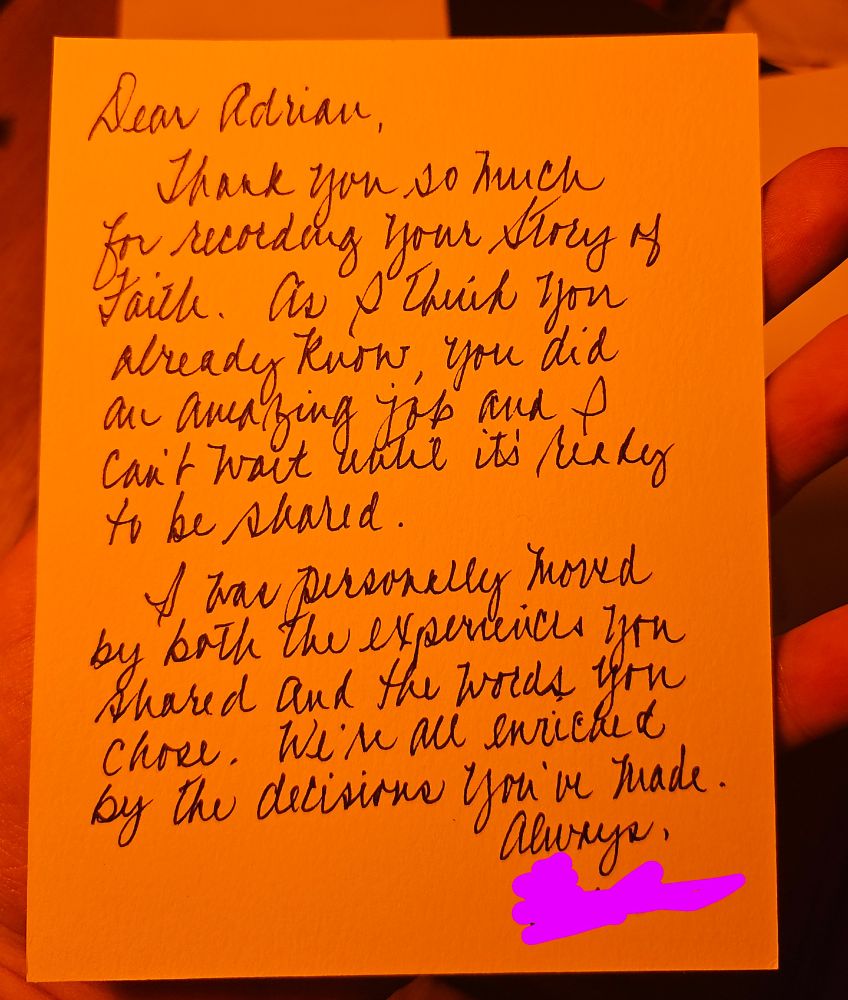 Dear Adrian,
Thank you so much
for recording your Story of
Faith. As I think you
already know, you did
an amazing job and I
can't wait until it's ready
to be shared.
I was personally moved
by both the experiences you
shared and the words you
chose. We're all enriched
by the decisions you've made.
Always,